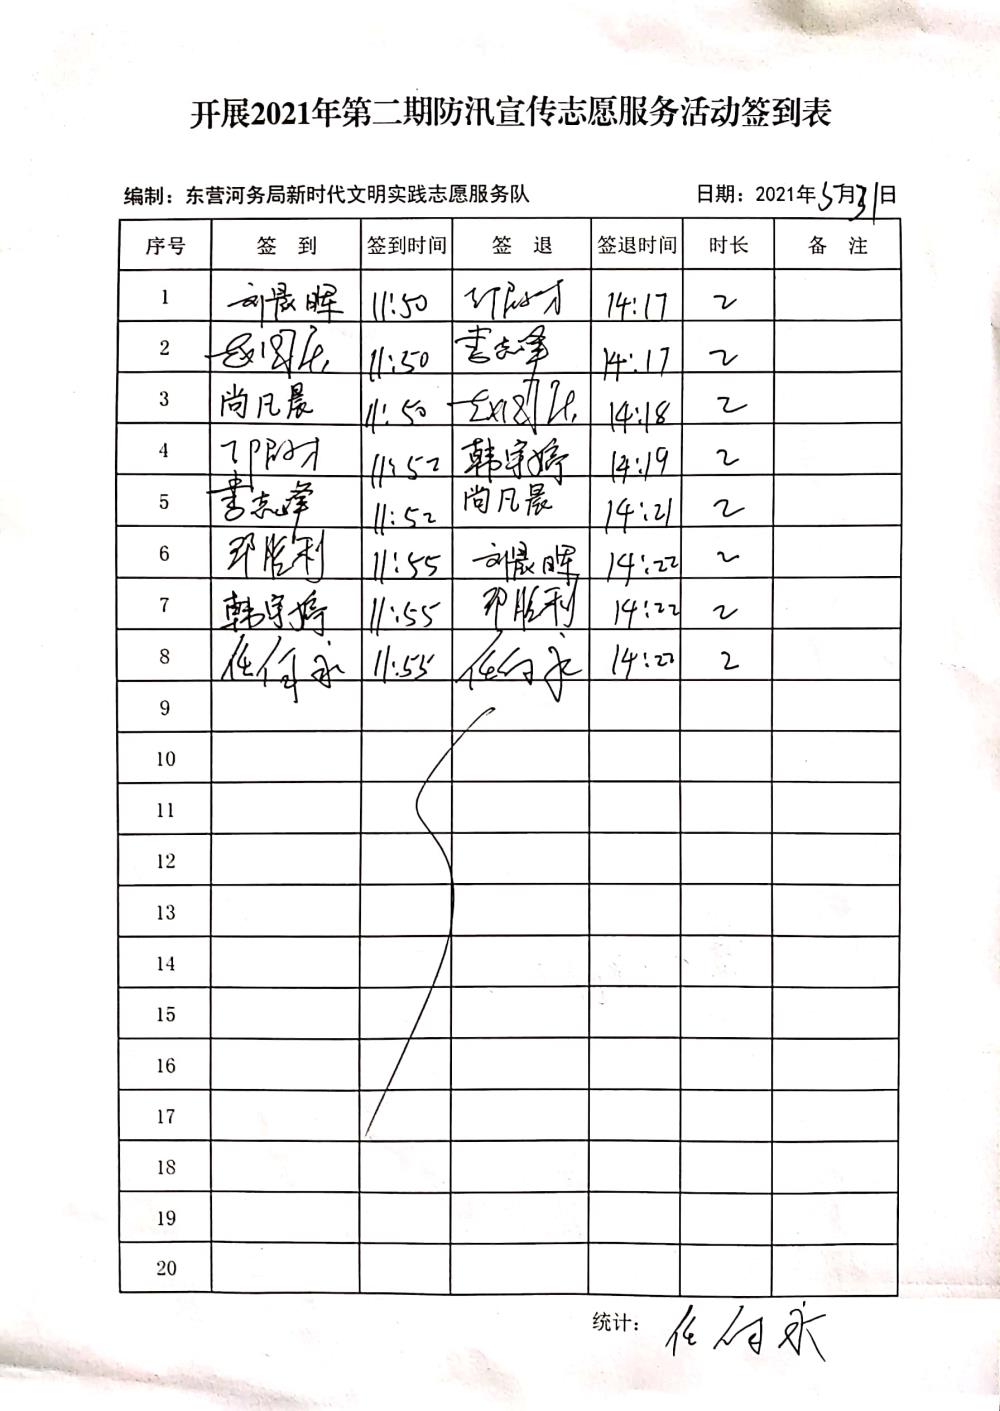 开展2021年第二期防汛宣传志愿服务活动签到表
编制：东营河务局新时代文明实践志愿服务队 日期：2021年5月31日
序号 签 到 签到时间 签 退 签退时间 时长 备 注
1 刘晨晖 11:50 14:17 2
2 11:50 李志泽 14:17 2
3 尚凡晨 11:50 14:18 2
4 11:52 韩宇婷 14:19 2
5 李志泽 11:52 尚凡晨 14:21 2
6 邓胜利 11:55 刘晨晖 14:22 2
7 韩宇婷 11:55 邓胜利 14:22 2
8 11:55 14:22 2
9
10
11
12
13
14
15
16
17
18
19
20
统计：